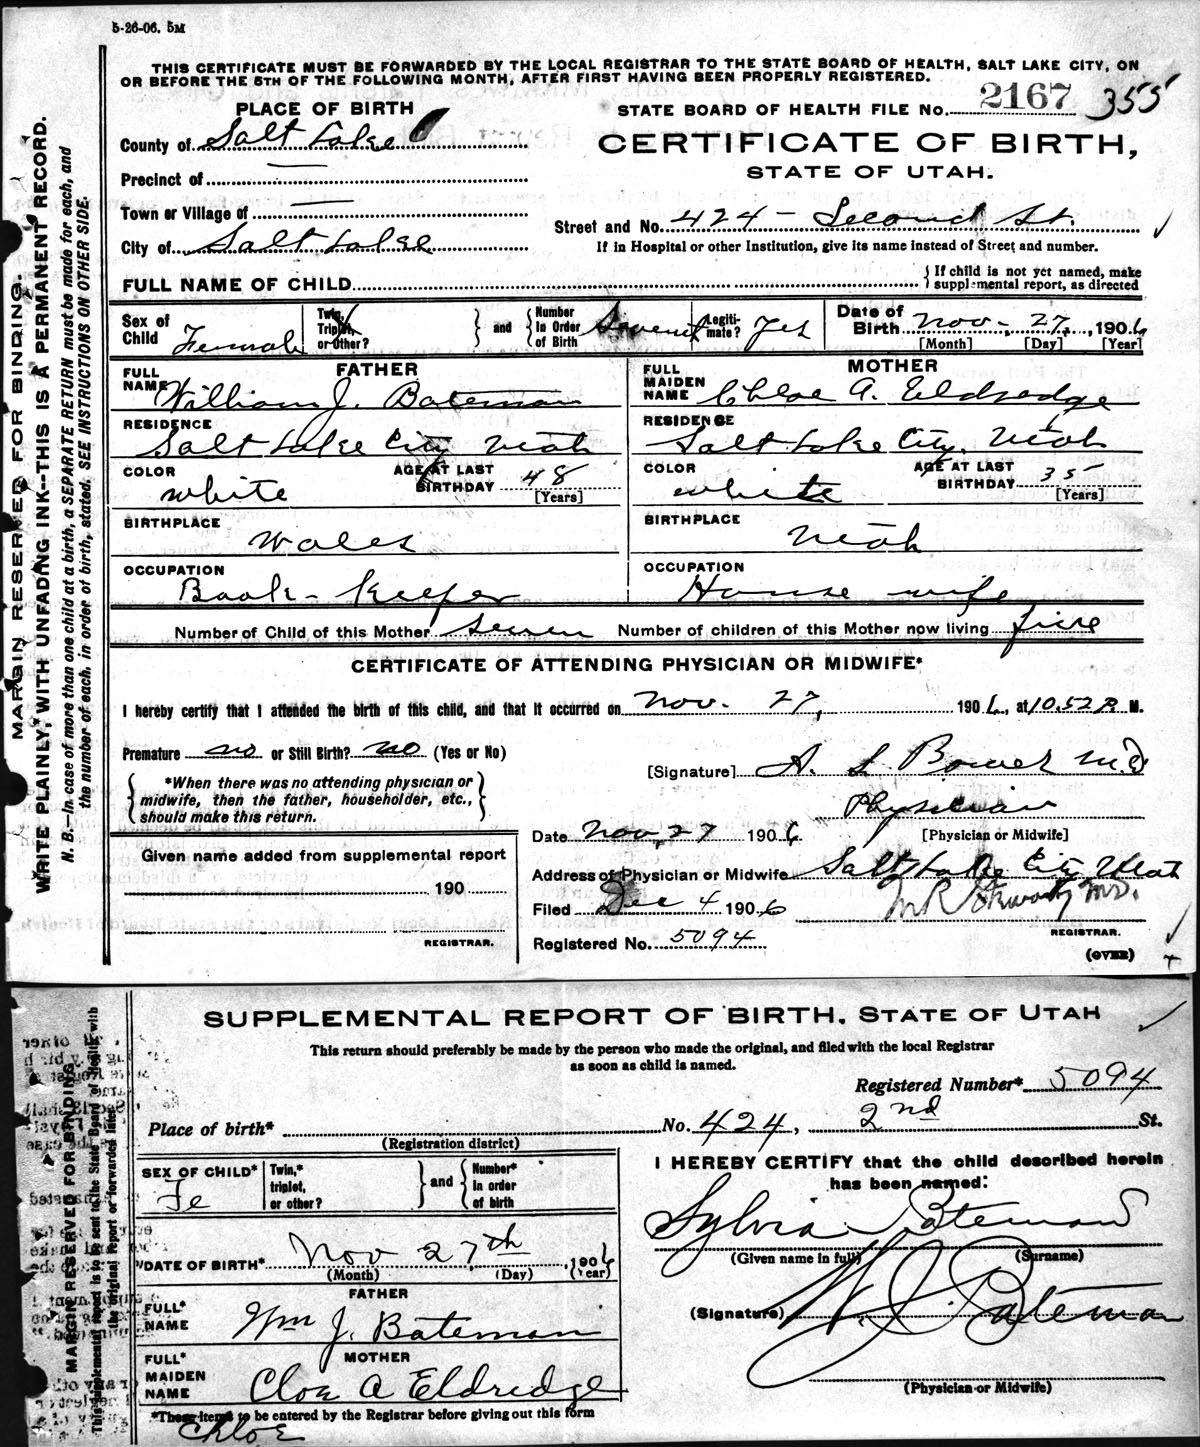 5-26-06. 5M
THIS CERTIFICATE MUST BE FORWARDED BY THE LOCAL REGISTRAR TO THE STATE BOARD OF HEALTH, SALT LAKE CITY, ON
OR BEFORE THE 5TH OF THE FOLLOWING MONTH, AFTER FIRST HAVING BEEN PROPERLY REGISTERED.
PLACE OF BIRTH
STATE BOARD OF HEALTH FILE No. 2167 355
County of Salt Lake
CERTIFICATE OF BIRTH,
STATE OF UTAH.
Precinct of —
Town or Village of —
Street and No. 424 - Second St.
City of Salt Lake
If in Hospital or other Institution, give its name instead of Street and number.
FULL NAME OF CHILD
If child is not yet named, make
supplemental report, as directed
Sex of Child Female
Twin, Triplet, or Other?
and
Number In Order of Birth Seventh
Legiti- mate? Yes
Date of Birth Nov- 27, 1906
[Month] [Day] [Year]
FATHER
FULL NAME William J. Bateman
RESIDENCE Salt Lake City Utah
COLOR white
AGE AT LAST BIRTHDAY 48 [Years]
BIRTHPLACE Wales
OCCUPATION Book-Keeper
MOTHER
FULL MAIDEN NAME Chloe A. Eldredge
RESIDENCE Salt Lake City, Utah
COLOR white
AGE AT LAST BIRTHDAY 35 [Years]
BIRTHPLACE Utah
OCCUPATION House wife
Number of Child of this Mother Seven Number of children of this Mother now living five
CERTIFICATE OF ATTENDING PHYSICIAN OR MIDWIFE*
I hereby certify that I attended the birth of this child, and that it occurred on Nov. 27, 1906, at 10.52 P. M.
Premature no or Still Birth? no (Yes or No)
[Signature] A. L Bower M.D
*When there was no attending physician or
midwife, then the father, householder, etc.,
should make this return.
Physician
[Physician or Midwife]
Date Nov, 27 1906
Given name added from supplemental report
190
REGISTRAR.
Address of Physician or Midwife Salt Lake City Utah
Filed Dec 4 1906
M R Stewart, M.D.
REGISTRAR.
Registered No. 5094
(OVER)
MARGIN RESERVED FOR BINDING.
WRITE PLAINLY, WITH UNFADING INK--THIS IS A PERMANENT RECORD.
N. B.—In case of more than one child at a birth, a SEPARATE RETURN must be made for each, and
the number of each, in order of birth, stated. SEE INSTRUCTIONS ON OTHER SIDE.
SUPPLEMENTAL REPORT OF BIRTH, STATE OF UTAH
This return should preferably be made by the person who made the original, and filed with the local Registrar
as soon as child is named.
Registered Number* 5094
Place of birth* No. 424, 2nd St.
(Registration district)
SEX OF CHILD* Fe
Twin,* triplet, or other?
and
Number* In order of birth
DATE OF BIRTH* Nov 27th, 1906
(Month) (Day) (Year)
FATHER
FULL* NAME Wm J. Bateman
MOTHER
FULL* MAIDEN NAME Cloe A Eldredge
*These items to be entered by the Registrar before giving out this form
Chloe
I HEREBY CERTIFY that the child described herein
has been named:
Sylvia Bateman
(Given name in full) (Surname)
(Signature) W. J. Bateman
(Physician or Midwife)
MARGIN RESERVED FOR BINDING
This supplemental report is to be sent to the State Board of Health with
the original report or forwarded later.